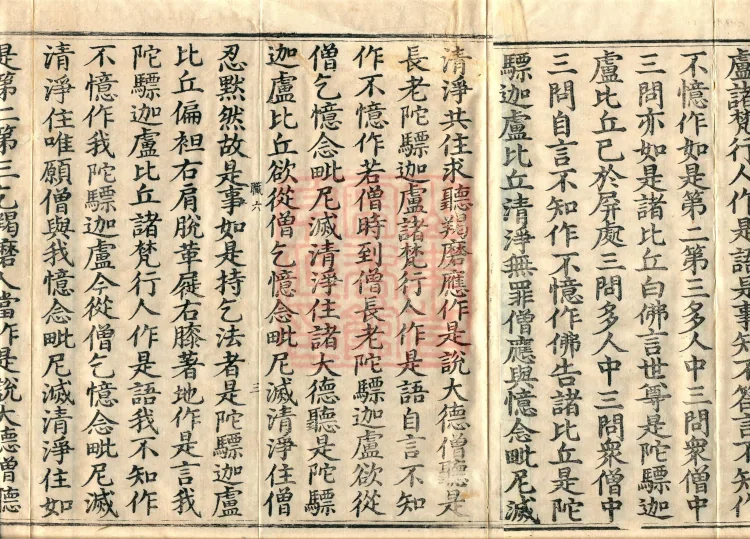 盧諸梵行人作是語是事知不答言不知作
不憶作如是第二第三多人中三問衆僧中
三問亦如是諸比丘白佛言世尊是陀驃迦
盧比丘已於屏處三問多人中三問衆僧中
三問自言不知作不憶作佛告諸比丘是陀
驃迦盧比丘清淨無罪僧應與憶念毗尼滅
清淨共住求聽羯磨應作是說大德僧聽是
長老陀驃迦盧諸梵行人作是語自言不知
作不憶作若僧時到僧長老陀驃迦盧欲從
僧乞憶念毗尼滅清淨住諸大德聽是陀驃
迦盧比丘欲從僧乞憶念毗尼滅清淨住僧
六 三
忍默然故是事如是持乞法者是陀驃迦盧
比丘偏袒右肩脫革屣右膝著地作是言我
陀驃迦盧比丘諸梵行人作是語我不知作
不憶作我陀驃迦盧今從僧乞憶念毗尼滅
清淨住唯願僧與我憶念毗尼滅清淨住如
是第二第三乞羯磨人當作是說大德僧聽